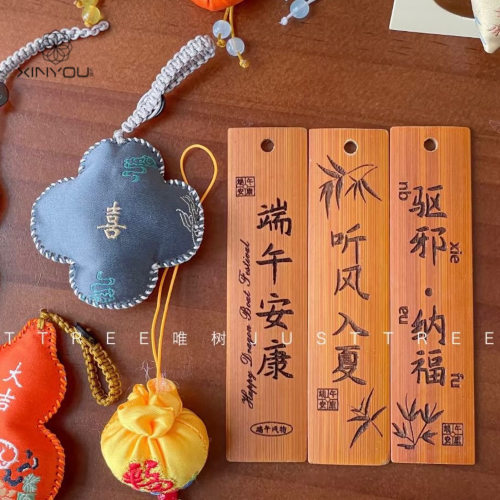 XINYOU
喜
大吉
端午安康
Happy Dragon Boat Festival
端午安康
端午风物
听风入夏
端午安康
驱邪·纳福
qu
xie
na
fu
端午安康
T TREE 唯树 JUST TREE